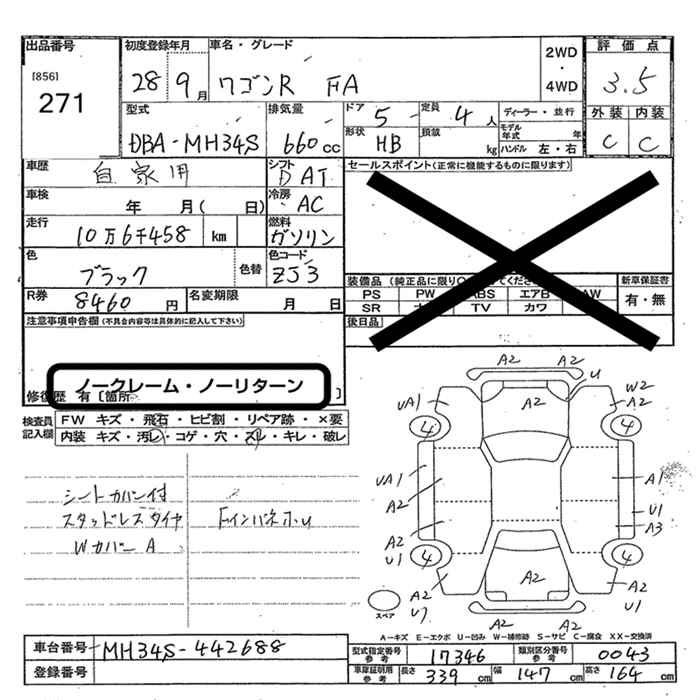 出品番号 初度登録年月 車名・グレード 2WD・4WD 評価点
[856] 271 28 9月 ワゴンR FA 3.5
型式 排気量 ドア 5 定員 4人 ディーラー・並行 外装 内装
DBA-MH34S 660cc 形状 HB 積載 kg モデル年式 年 ハンドル 左・右 C C
車歴 自家用 シフト DAT セールスポイント(正常に機能するものに限ります)
車検 年 月( 日) 冷房 AC
走行 10万6千458 km 燃料 ガソリン
色 ブラック 色替 色コード ZJ3
装備品(純正品に限り 新車保証書
R券 8460円 名変期限 月 日 PS PW ABS エアB AW 有・無
SR TV カワ
注意事項申告欄(不具合内容等は具体的に記入して下さい) 後日品
ノークレーム・ノーリターン
修復歴 有[箇所 ]
検査員記入欄 FW キズ・飛石・ヒビ割・リペア跡・×要
内装 キズ・汚レ・コゲ・穴・スレ・キレ・破レ
シートカバー付
スタッドレスタイヤ
Wカバー A
A2 A2
U
UA1 A2 W2 A2
4 4
UA1 A1
A2 U1
A3
A2
U1
4 4
A2 A2 A2
U1
A2 A2
スペア
A-キズ E-エクボ U-凹み W-補修跡 S-サビ C-腐食 XX-交換済
車台番号 MH34S-442688 型式指定番号参考 17346 類別区分番号参考 0043
登録番号 車庫証明用参考 長さ 339cm 幅 147cm 高さ 164cm